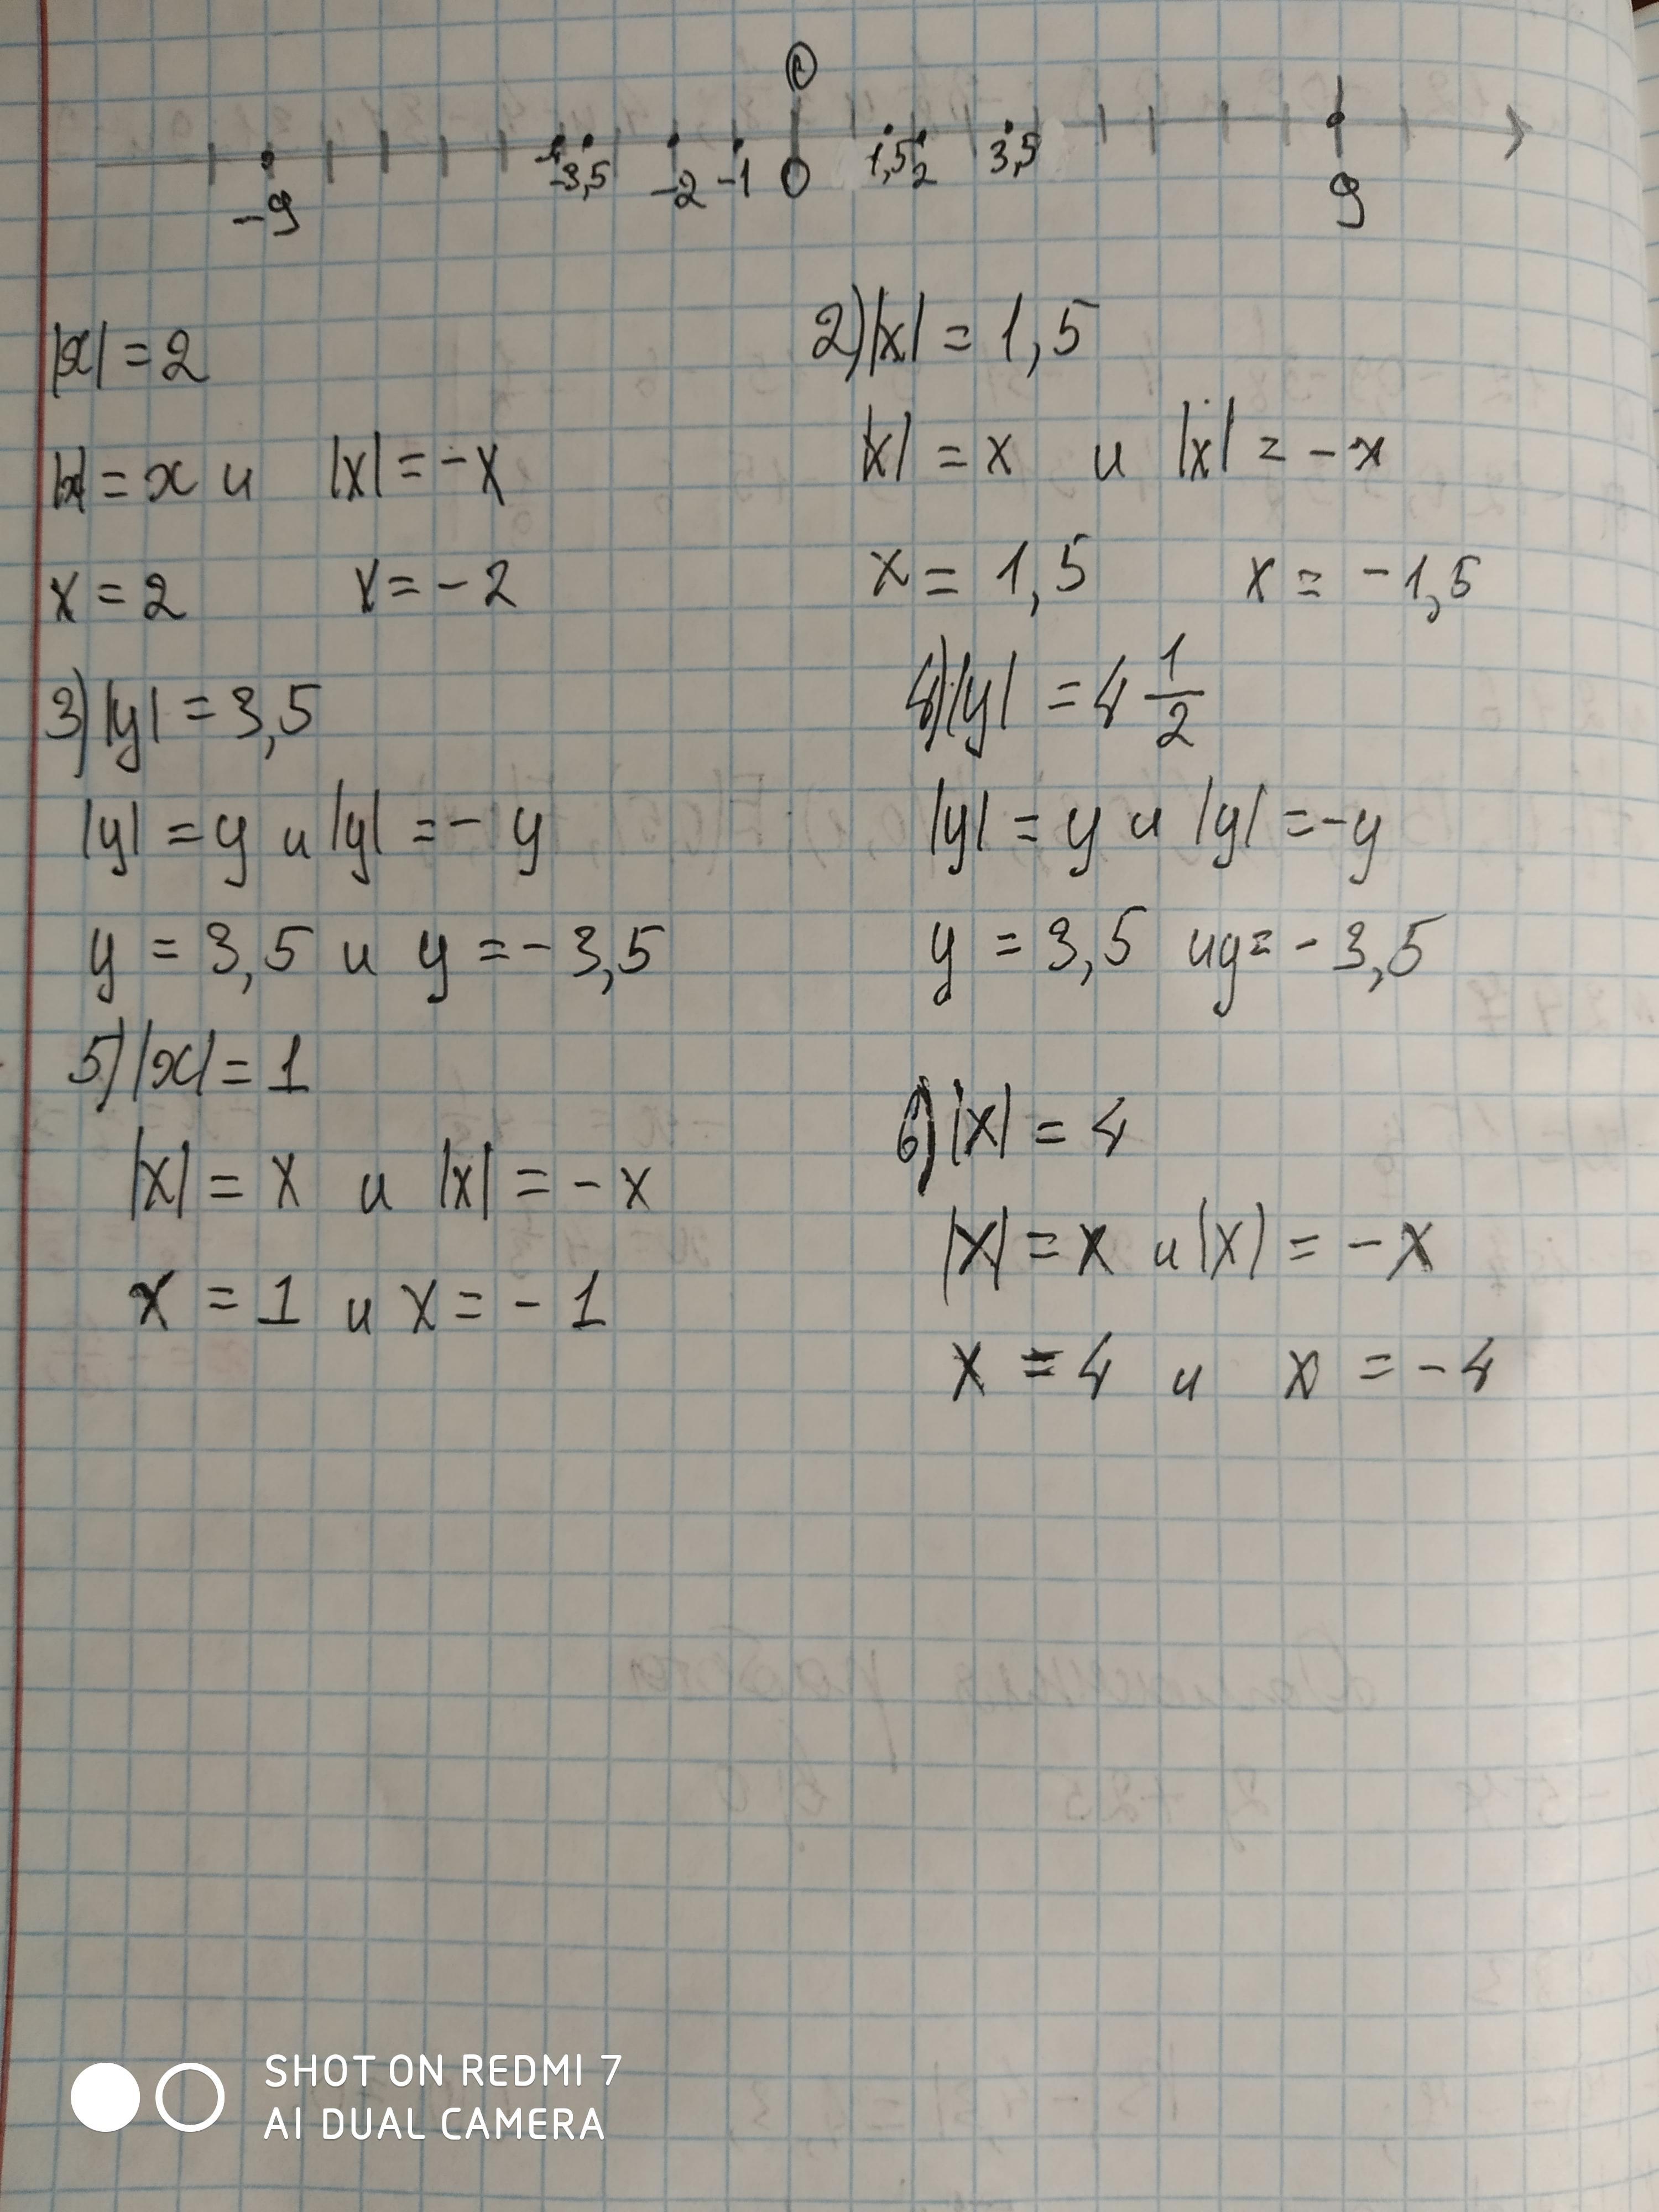 0
-9 -4 -3,5 -2 -1 0 1,5 2 3,5 9
|x| = 2
|x| = x и |x| = -x
x = 2 x = -2
2) |x| = 1,5
|x| = x и |x| = -x
x = 1,5 x = -1,5
3) |y| = 3,5
|y| = y и |y| = - y
y = 3,5 и y = - 3,5
4) |y| = 4 1/2
|y| = y и |y| = -y
y = 3,5 и y = - 3,5
5) |x| = 1
|x| = x и |x| = - x
x = 1 и x = - 1
6) |x| = 4
|x| = x и |x| = - x
x = 4 и x = - 4
SHOT ON REDMI 7
AI DUAL CAMERA